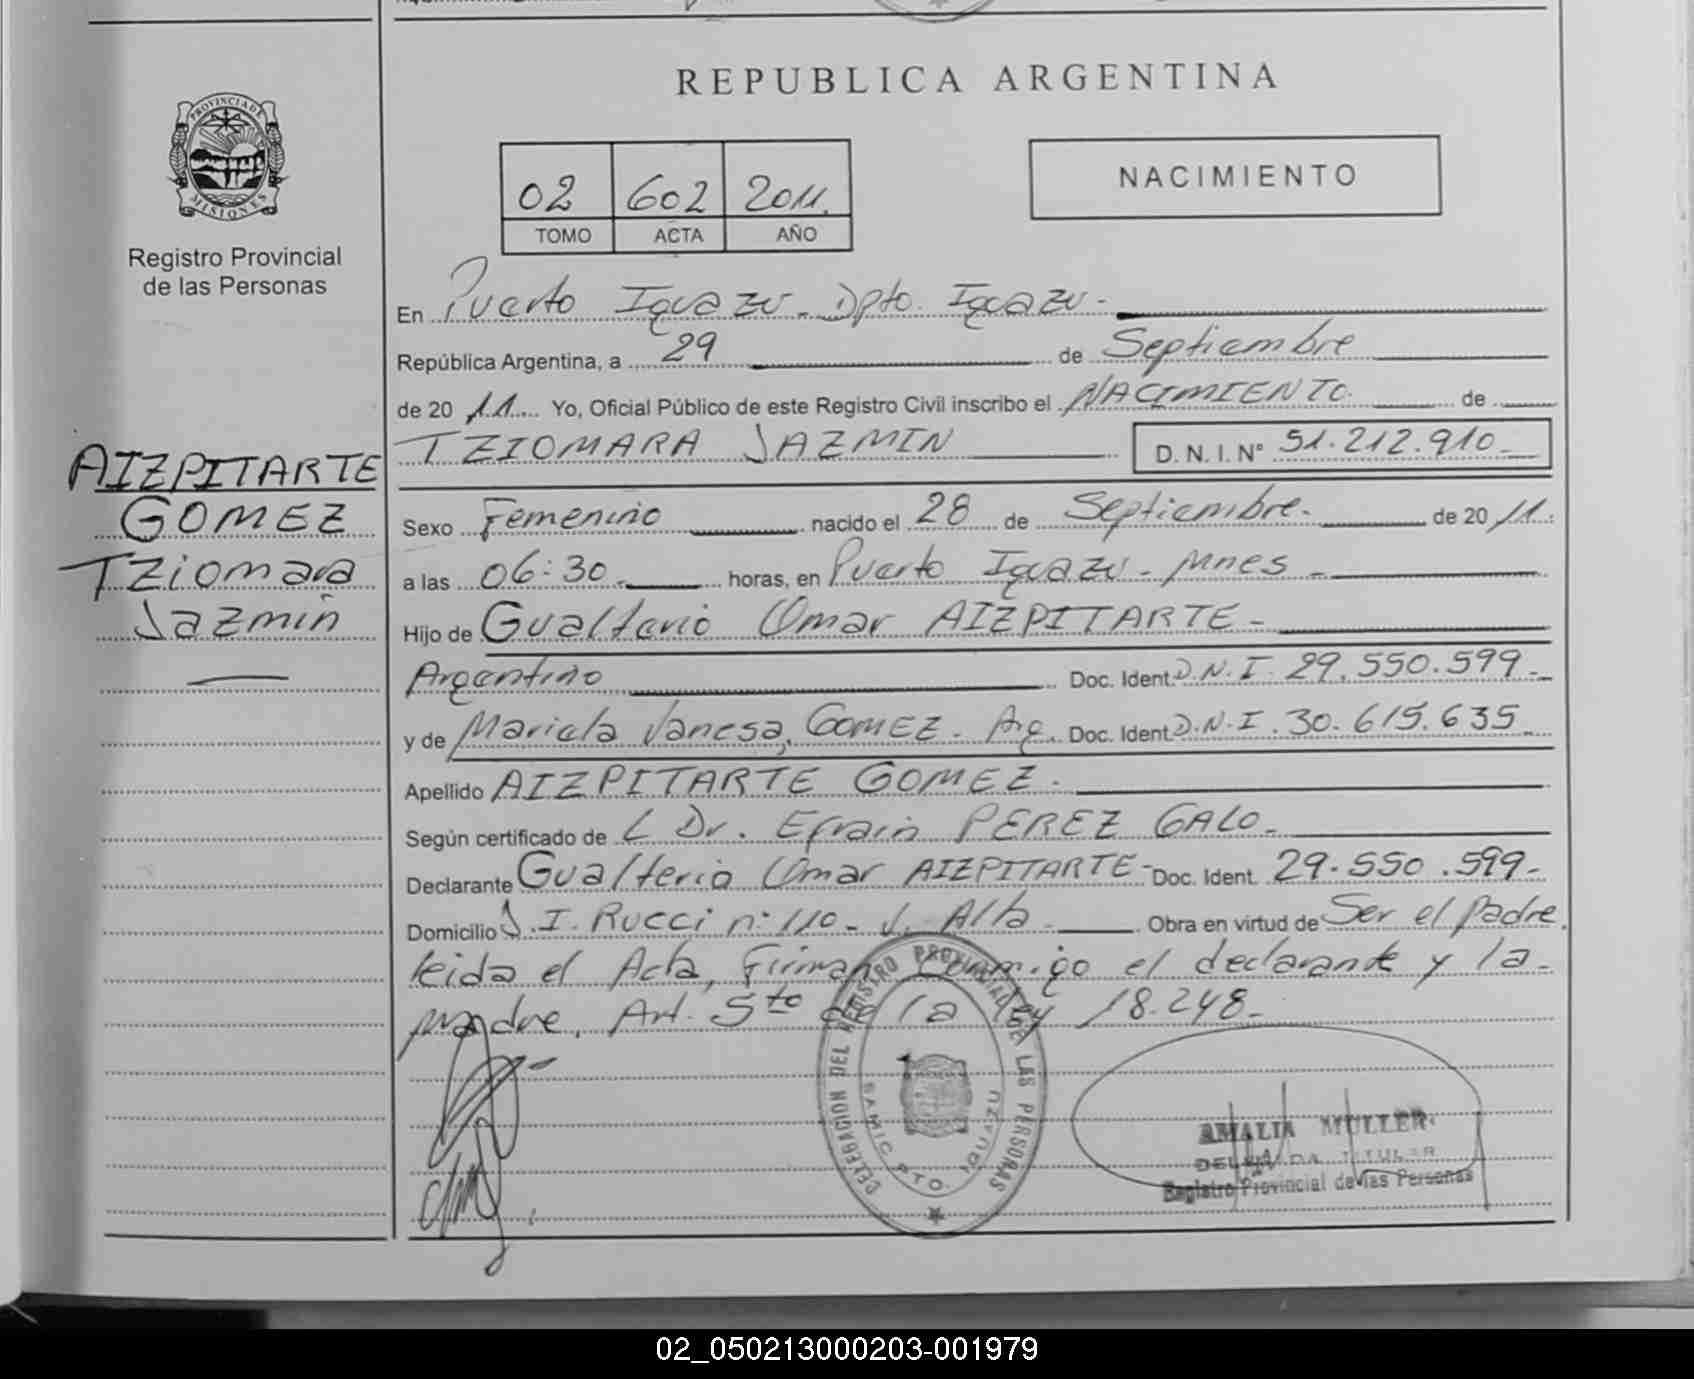 REPUBLICA ARGENTINA
PROVINCIA DE
MISIONES
Registro Provincial
de las Personas
02 602 2011.
TOMO ACTA AÑO
NACIMIENTO
En Puerto Iguazu - Dpto. Iguazu -
República Argentina, a 29 de Septiembre
de 20 11 Yo, Oficial Público de este Registro Civil inscribo el NACIMIENTO de
TZIOMARA JAZMIN D.N.I. Nº 51.212.910
AIZPITARTE
GOMEZ
Tziomara
Jazmin
Sexo Femenino nacido el 28 de Septiembre - de 20 11.
a las 06:30 horas, en Puerto Iguazu - Mnes -
Hijo de Gualterio Omar AIZPITARTE -
Argentino Doc. Ident. D.N.I. 29.550.599 -
y de Mariela Vanesa, GOMEZ - Arg. Doc. Ident. D.N.I. 30.615.635
Apellido AIZPITARTE GOMEZ -
Según certificado de L Dr. Efrain PEREZ GALO -
Declarante Gualterio Omar AIZPITARTE - Doc. Ident. 29.550.599 -
Domicilio J. I. Rucci nº 110 - V. Alta Obra en virtud de Ser el padre
leida el Acta, Firman Conmigo el declarante y la -
madre, Art. 5to de la ley 18.248 -
DELEGACION DEL REGISTRO PROVINCIAL DE LAS PERSONAS
PTO. IGUAZU
AMALIA MULLER
DELEGADA TITULAR
Registro Provincial de las Personas
02_050213000203-001979